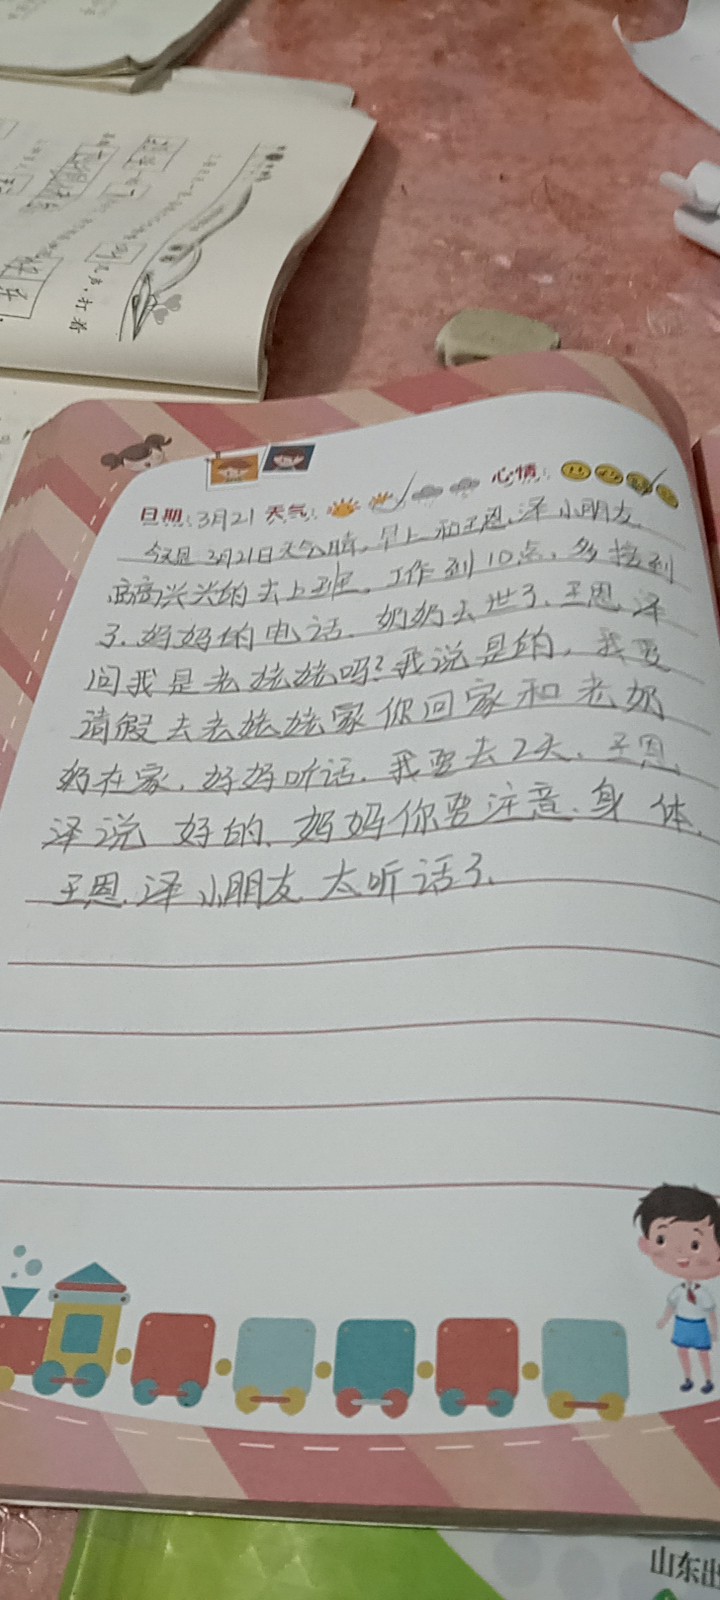 心情:
日期:3月21 天气:
今天是3月21日天气晴,早上和王恩.泽小朋友.
高高兴兴的去上班.工作到10点.多接到
了.妈妈的电话.奶奶去世了.王恩.泽
问我是老姥姥吗?我说是的,我要
请假去老姥姥家你回家和老奶
奶在家.好好听话.我要去2天.王恩.
泽说 好的.妈妈你要注音.身体.
王恩.泽小朋友太听话了.
山东出